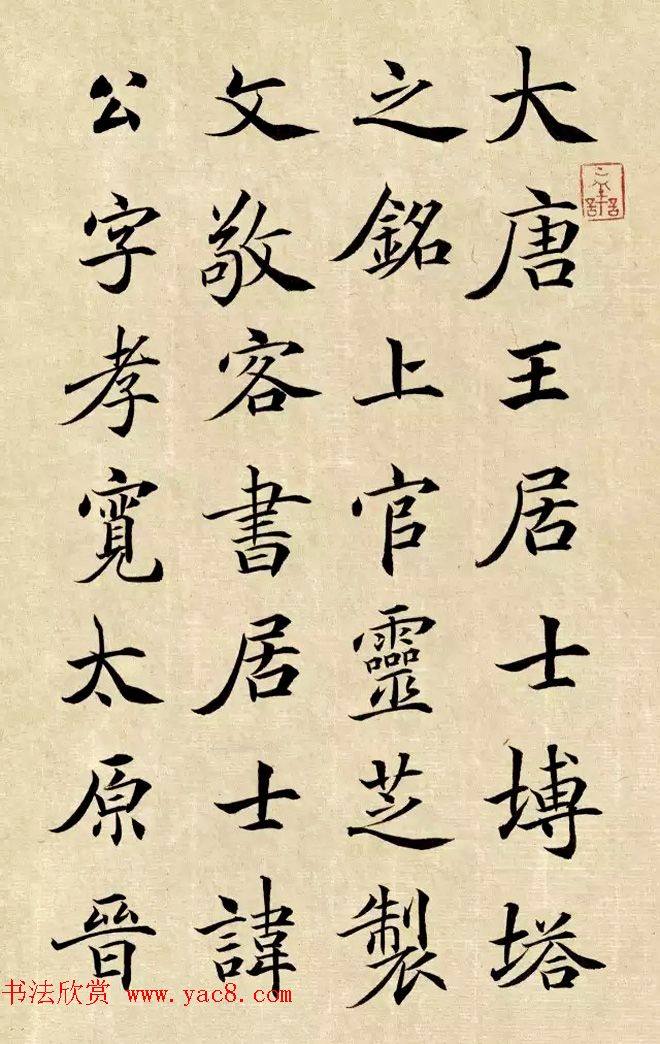 大唐王居士塼塔
之銘上官靈芝製
文敬客書居士諱
公字孝寬太原晉
书法欣赏 www.yac8.com